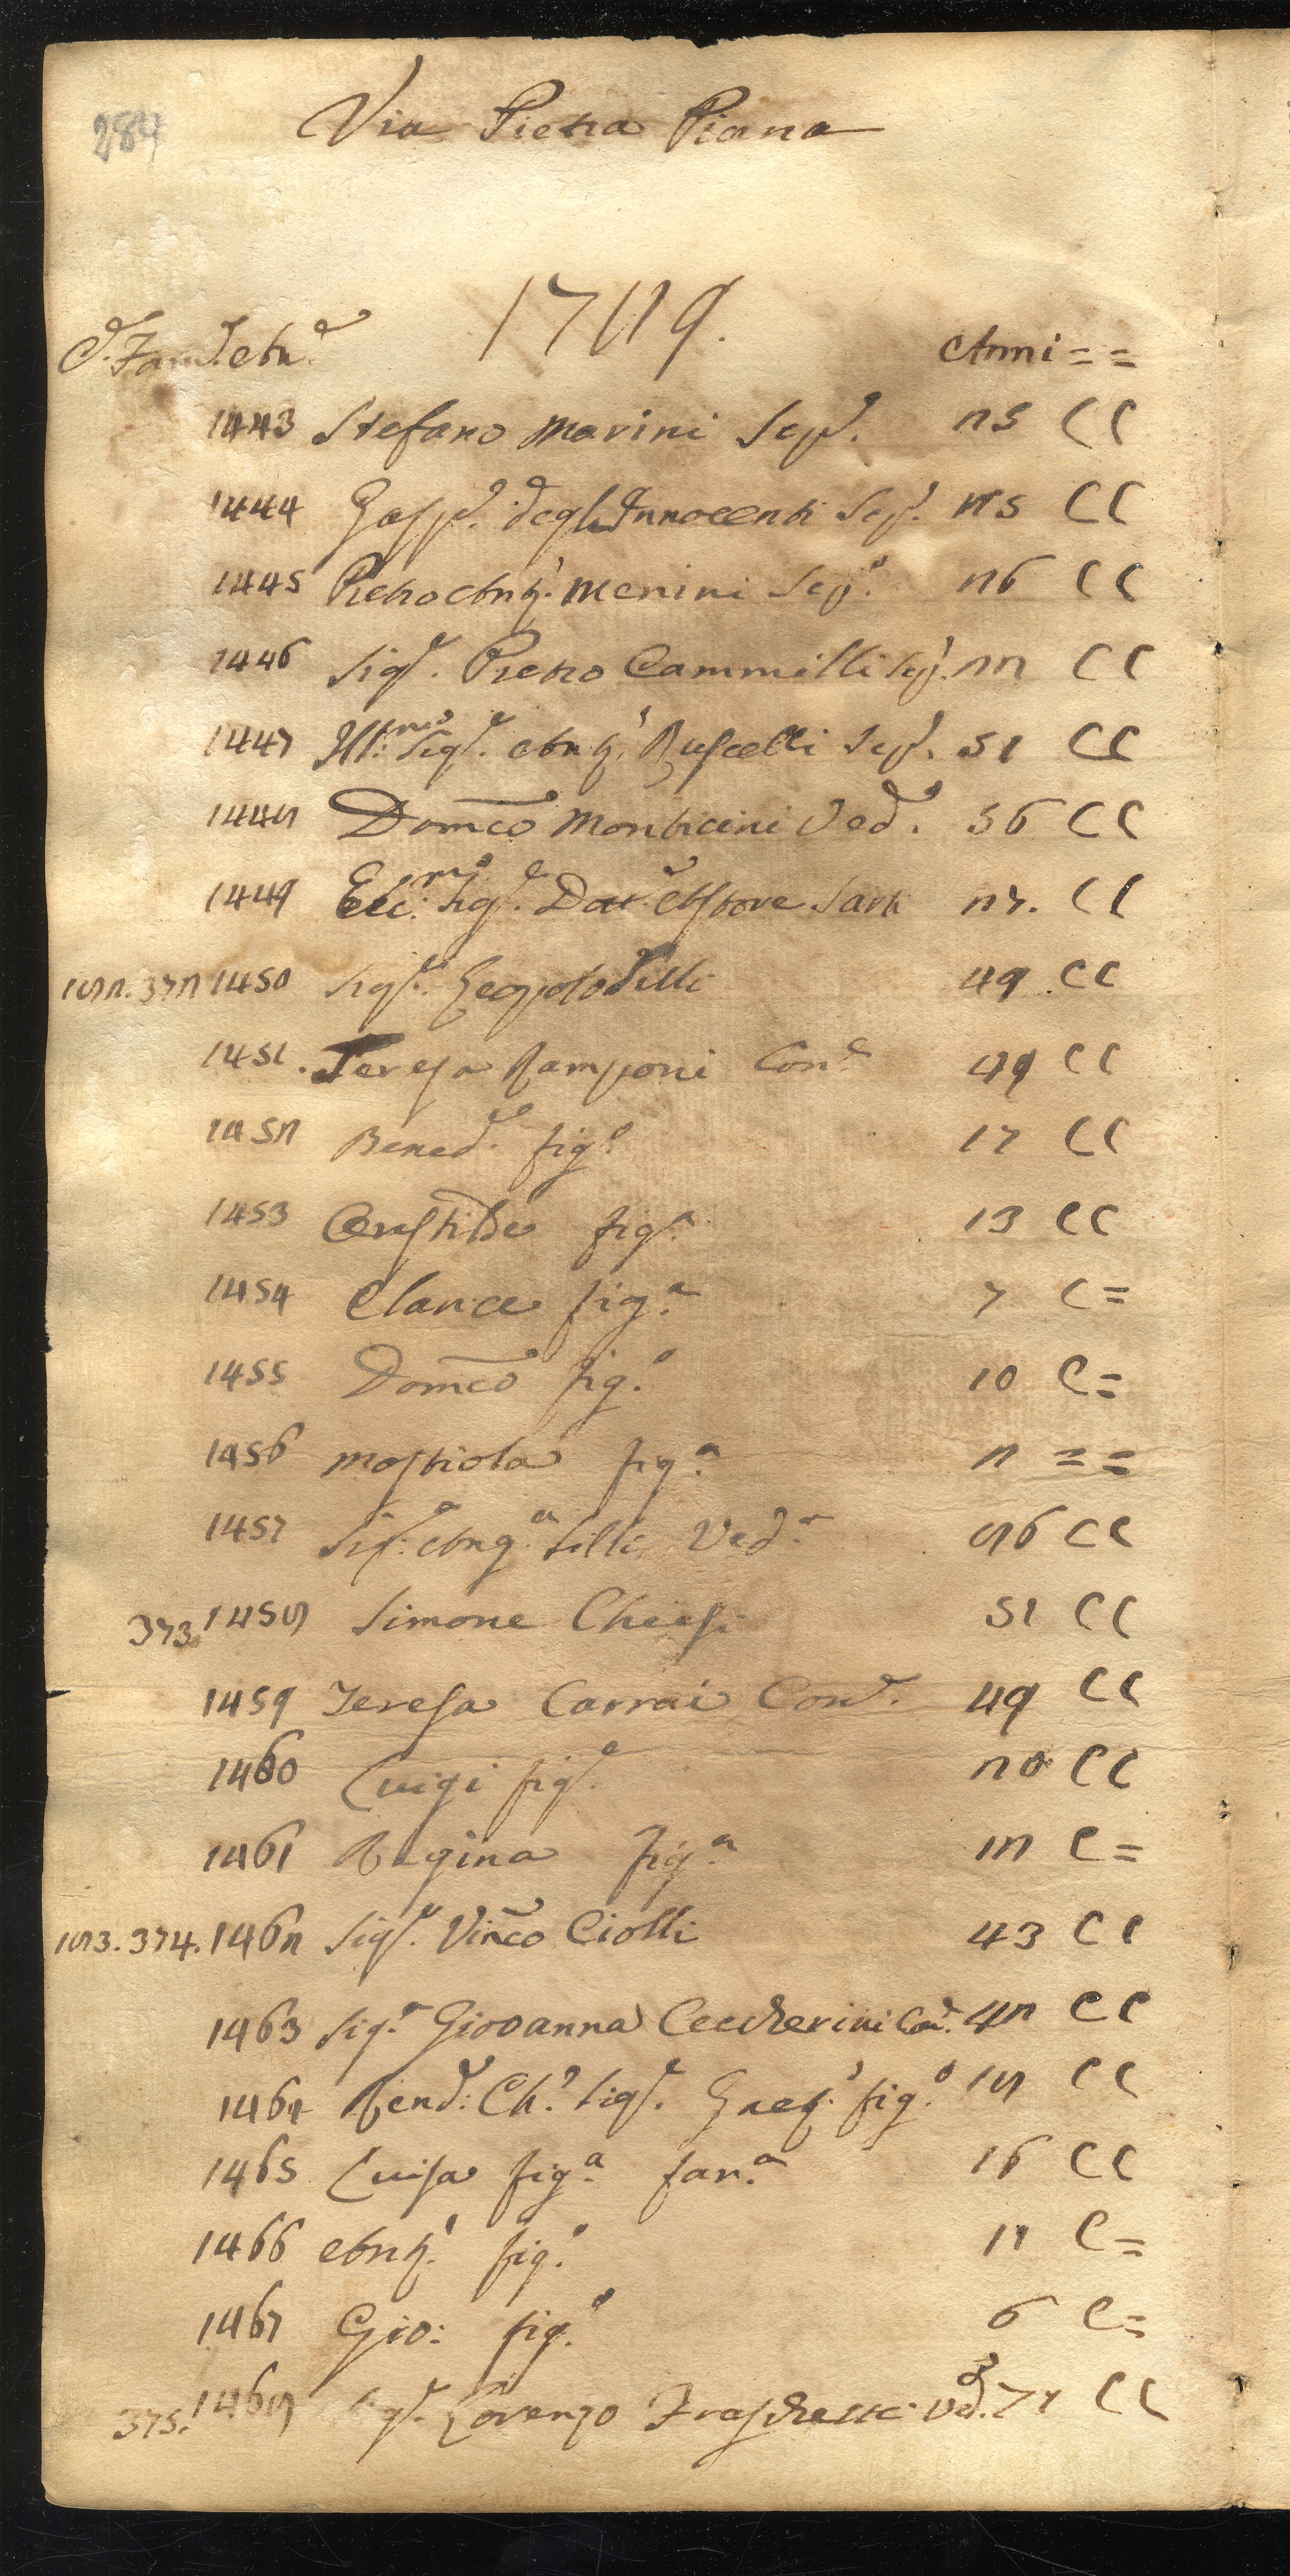 284
Via Pietra Piana
1749.
C. Fam. Je An.e Anni = =
1443 Stefano Marini Sep.o 25 CC
1444 Gasp.e degl'Innocenti Sep.o 25 CC
1445 Pietro Ant.o Menini Sep.o 26 CC
1446 Sig.e Pietro Cammilli Sep.o 22 CC
1447 Ill.mo Sig.e Ant.o Ruscelli Sep.o 51 CC
1448 Dom̃co Monticini Ved.o 56 CC
1449 Ecc.mo Sig.e Dot.e Ettore Sarti 27. CC
182. 372 1450 Sig.e Leopoldo Tilli 49 CC
1451. Teresa Ramponi Con.e 49 CC
1452 Bened.e fig.o 17 CC
1453 Crestilde fig.a 13 CC
1454 Clarice fig.a 7 C=
1455 Dom̃co fig.o 10 C=
1456 Mostiola fig.a 2 ==
1457 Sig.a Ang.a Tilli Ved.a 86 CC
373. 1458 Simone Chiesi 51 CC
1459 Teresa Carrai Con.e 49 CC
1460 Luigi fig.o 20 CC
1461 Regina fig.a 12 C=
183. 374. 1462 Sig.e Vinc̃o Ciolli 43 CC
1463 Sig.a Giovanna Ceccherini Con.e 42 CC
1464 Rend: Ch.o Sig.e Gaet.o fig.o 18 CC
1465 Luisa fig.a fan.a 16 CC
1466 Ant.o fig.o 11 C=
1467 Gio: fig.o 6 C=
375. 1468 Sig.e Lorenzo Fraschetti Ved.o 74 CC